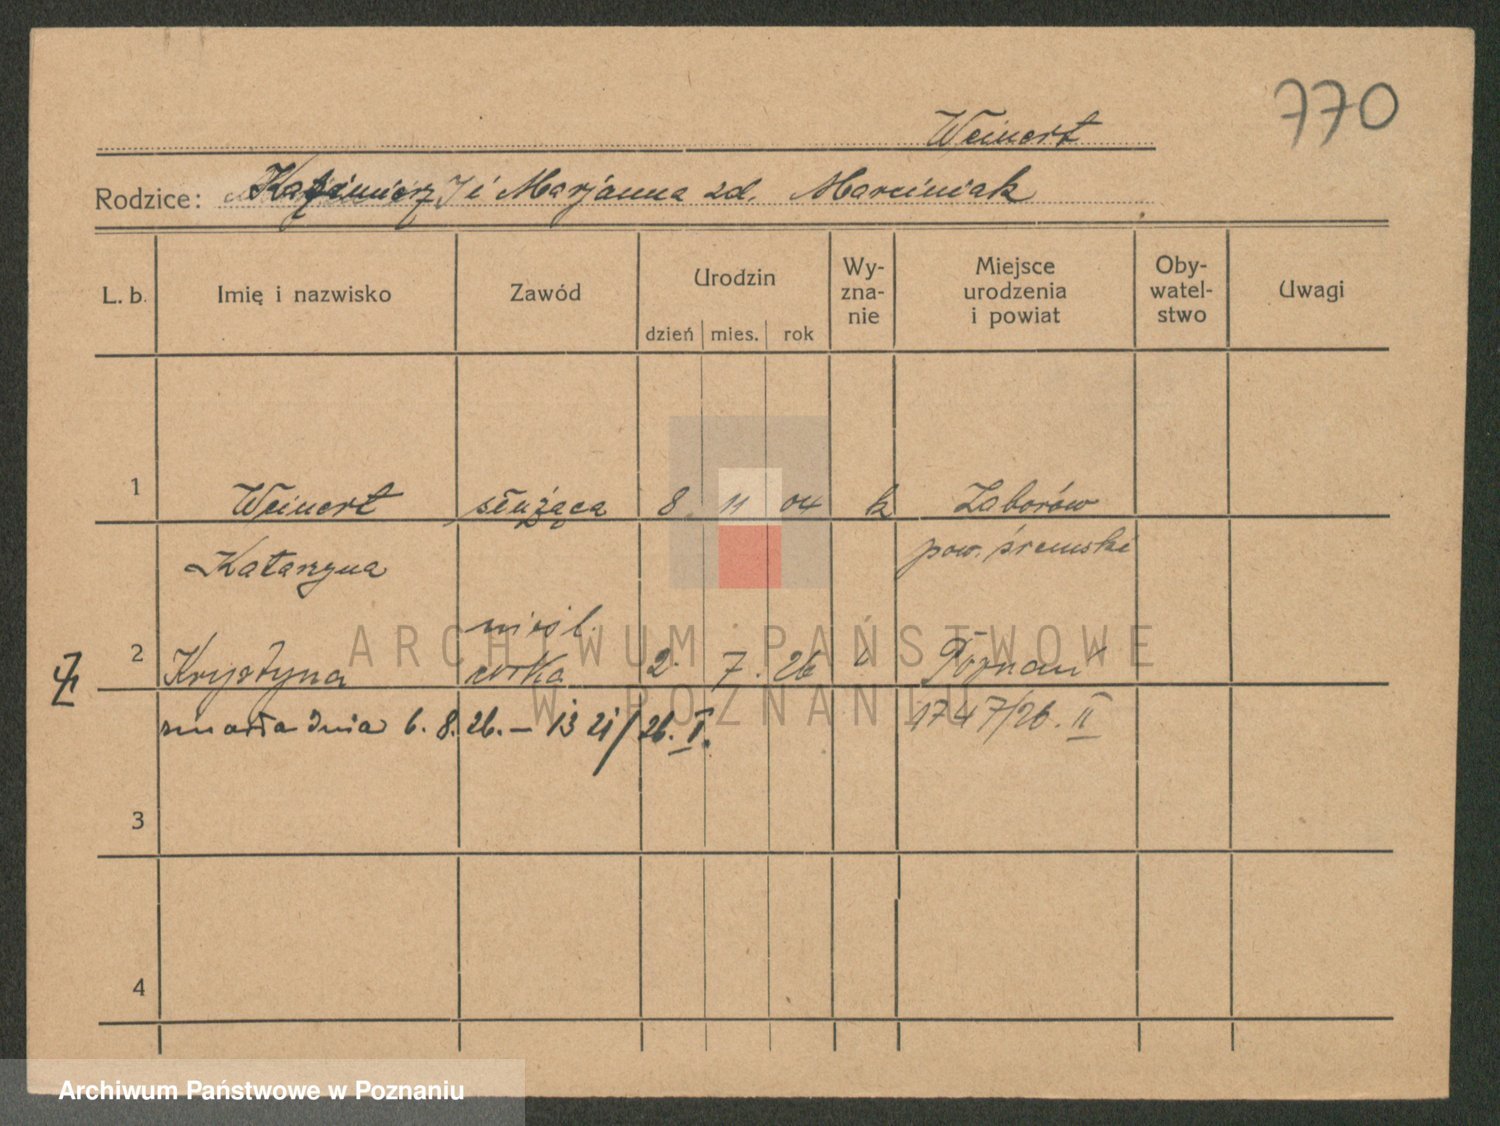 770
Weinert
Rodzice: Kazimierz i Marjanna zd. Marciniak
L. b. Imię i nazwisko Zawód Urodzin dzień mies. rok Wy-zna-nie Miejsce urodzenia i powiat Oby-watel-stwo Uwagi
1 Weinert służąca 8 11 04 k Zaborów
Katarzyna pow. śremski
nieśl.
2 Krystyna córka 2. 7. 26 k Poznań
zmarła dnia 6. 8. 26. – 1321/26. I. 1747/26. II
3
4
ARCHIWUM PAŃSTWOWE
W POZNANIU
Archiwum Państwowe w Poznaniu